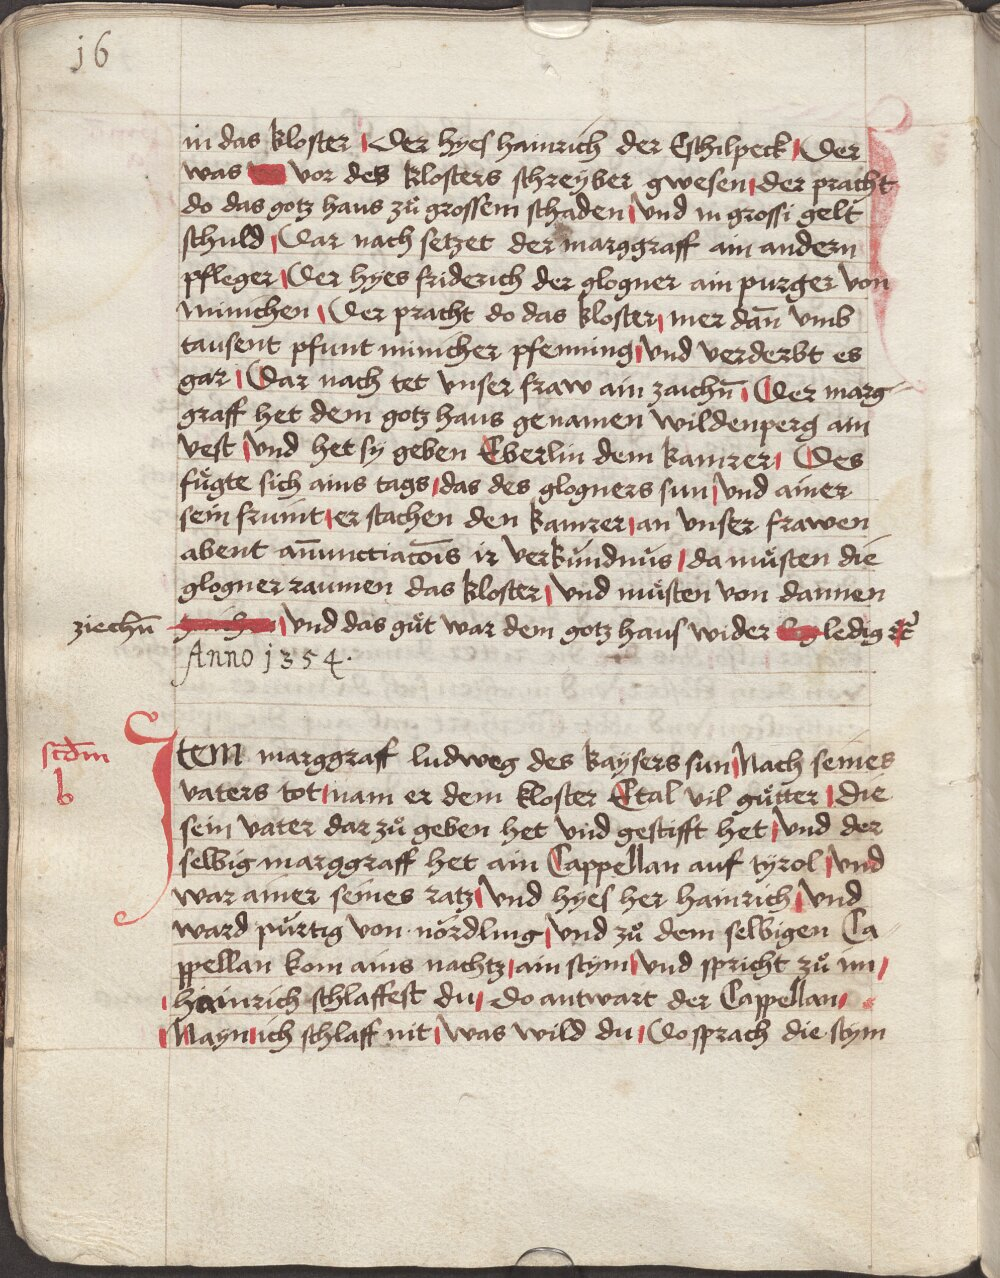 16
in das kloster Der hyes hainrich der Eschilpeck Der
was vor des klosters schreyber gwesen der pracht
do das gotz haus zů grossem schaden Und in grossi gelt
schuld Dar nach setzet der marggraff ain andern
pfleger Der hyes friderich der glogner ain purger von
minichen Der pracht do das kloster mer dan̄ umb
tausent pfunt minicher pfenning Und verderbt es
gar Dar nach tet unser fraw ain zaichn̄ Der marg
graff het dem gotz haus genamen wildenperg ain
vest Und het sy geben Eberlin dem kamrer Des
fůgte sich ains tags das des glogners sun Und ainer
sein frunt erstachen den kamrer an unser frawen
abent an̄unctiacōis ir verkundnus da můsten die
glogner raumen das kloster Und můsten von dannen
ziechn̄ Und das gůt war dem gotz haus wider ledig
Anno 1354.
scdm
b
Item marggraff ludweg des kaysers sun Nach seines
vaters tot nam er dem kloster Etal vil gůtter die
sein vater dar zů geben het und gestifft het Und der
selbig marggraff het ain Cappellan auf tyrol Und
war ainer seines ratz Und hyes her hainrich Und
ward purtig von nordling Und zů dem selbigen Ca
ppellan kom ains nachtz ain stym Und spricht zů im
hainrich schlaffest du Do antwart der Cappellan
Nayn ich schlaff nit Was wild du Do sprach die stym